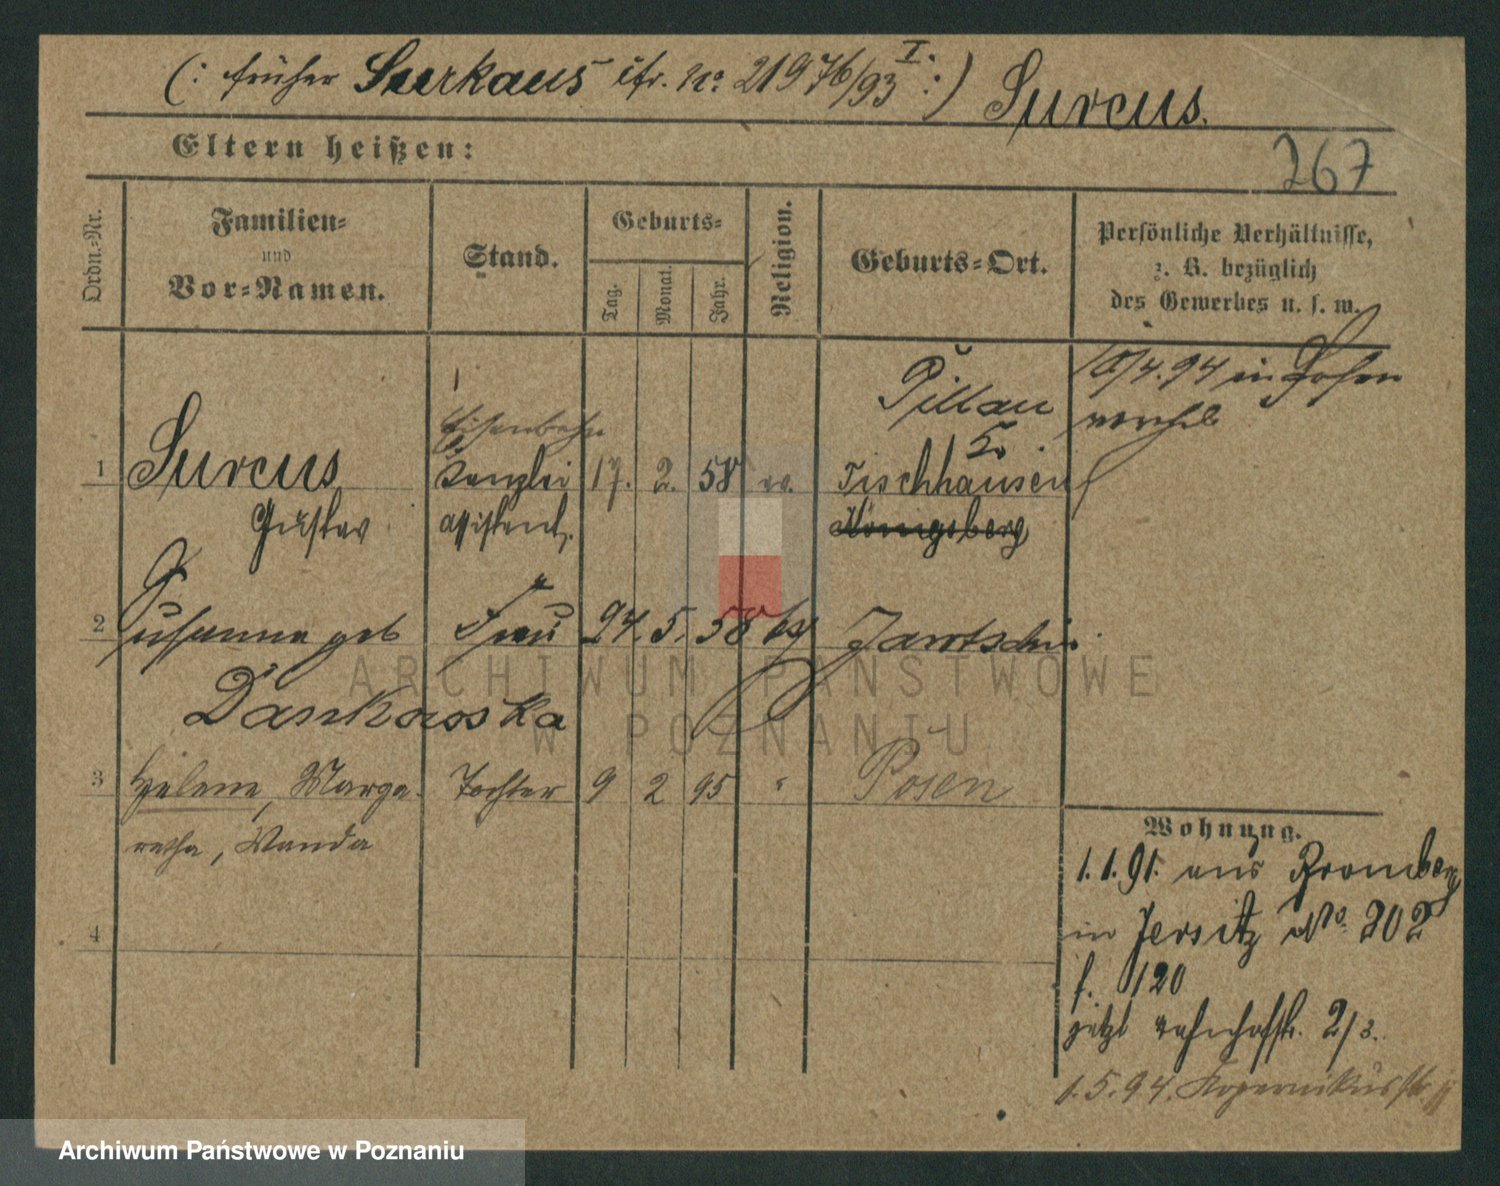 (: früher Surkaus ifr. No. 21976/93 I. :) Surcus.
Eltern heißen:
267
Ordn.-Nr.
Familien-
und
Vor-Namen.
Stand.
Geburts-
Tag.
Monat.
Jahr.
Religion.
Geburts-Ort.
Persönliche Verhältnisse,
z. B. bezüglich
des Gewerbes u. s. w.
10/4.94 in Posen
Pillau
Eisenbahn
1 Surcus Kanzlei 17. 2. 58 ev. Fischhausen
Gustav assistent. Königsberg
2 Susanna geb Frau 24. 5. 58 Jarotschin.
Dankowska
3 Helene, Marga- Tochter 9 2 95 " Posen
retha, Wanda
4
Wohnung.
1.1.91. aus Bromberg
in Jersitz No. 202
f. 120
jetzt Bahnhofstr. 2/3.
1.5.94. Kopernikusstr
ARCHIWUM PAŃSTWOWE
W POZNANIU
Archiwum Państwowe w Poznaniu